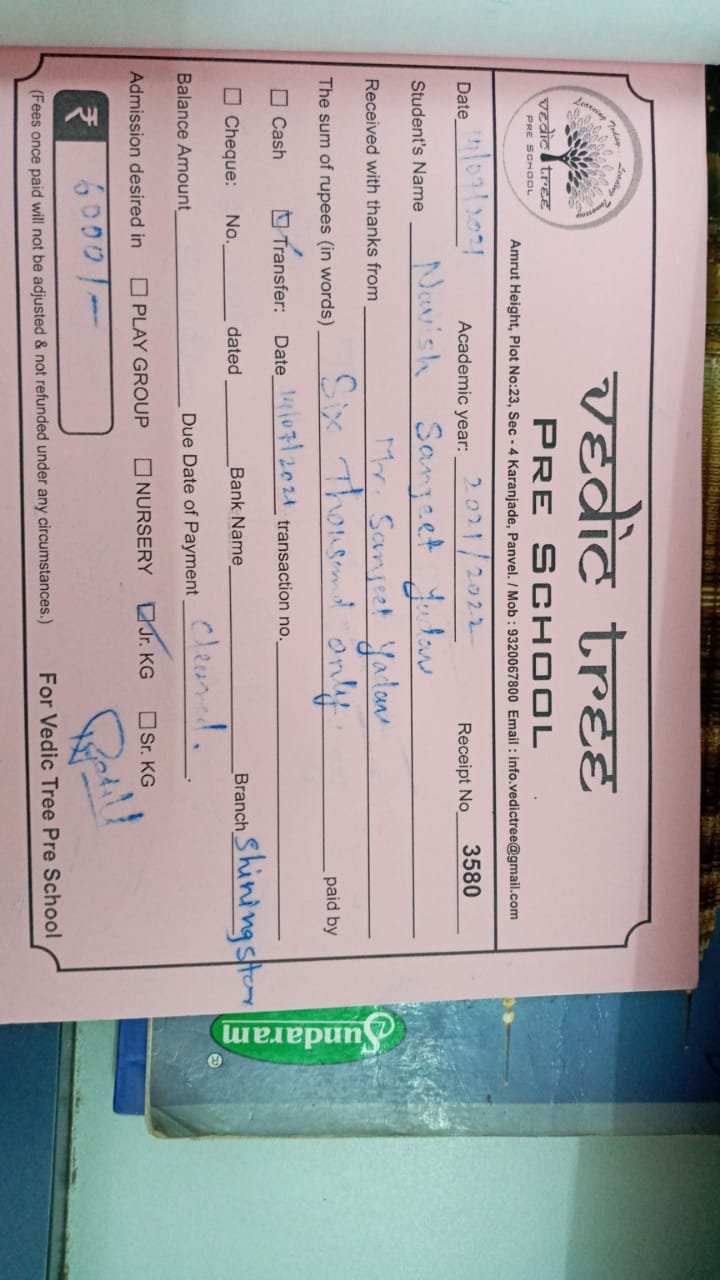 Learning Today... Leading Tomorrow
vedic tree
PRE SCHOOL
vedic tree
PRE SCHOOL
Amrut Height, Plot No:23, Sec - 4 Karanjade, Panvel. / Mob : 9320067800 Email : info.vedictree@gmail.com
Date 14/07/2021 Academic year: 2021/2022 Receipt No 3580
Student's Name Navish Sanjeet Yadav
Received with thanks from Mr. Sanjeet Yadav
The sum of rupees (in words) Six Thousand only. paid by
☐ Cash ☑ Transfer: Date 14/07/2021 transaction no.
☐ Cheque: No. dated Bank Name Branch Shining Star
Balance Amount Due Date of Payment Cleared.
Admission desired in ☐ PLAY GROUP ☐ NURSERY ☑ Jr. KG ☐ Sr. KG
₹ 6000/-
(Fees once paid will not be adjusted & not refunded under any circumstances.) For Vedic Tree Pre School
Sundaram ®